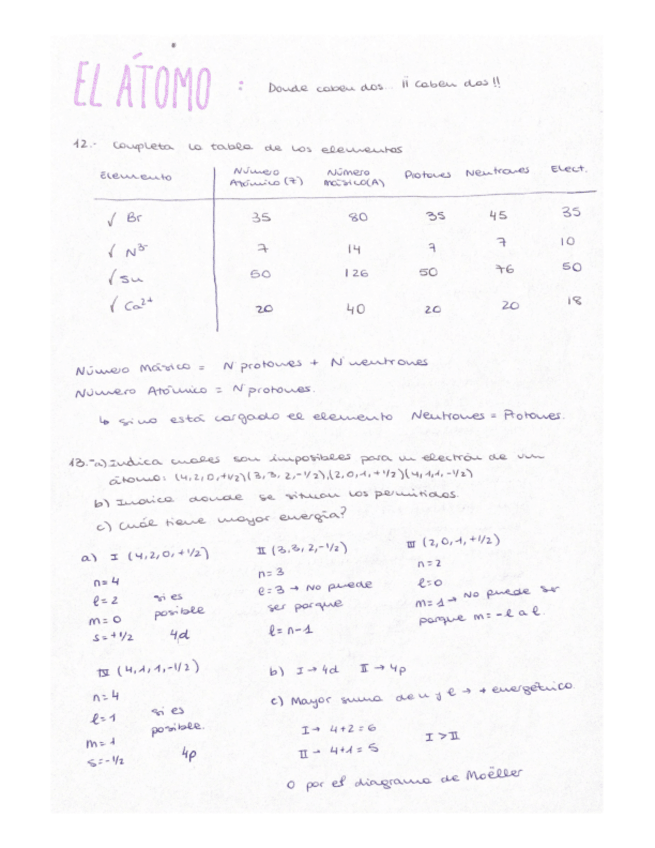 EL ÁTOMO : Donde caben dos... ¡¡ caben dos!!
12.- Completa la tabla de los elementos
Elemento Número Atómico (Z) Número Másico (A) Protones Neutrones Elect.
√ Br 35 80 35 45 35
√ N³⁻ 7 14 7 7 10
√ Sn 50 126 50 76 50
√ Ca²⁺ 20 40 20 20 18
Número Másico = Nº protones + Nº neutrones
Número Atómico = Nº protones.
↳ si no está cargado el elemento Neutrones = Protones.
13.- a) Indica cuales son imposibles para un electrón de un
átomo: (4,2,0,+1/2)(3,3,2,-1/2),(2,0,1,+1/2)(4,1,1,-1/2)
b) Indica donde se situan los permitidos.
c) Cuál tiene mayor energía?
a) I (4,2,0,+1/2)
n=4
l=2 si es
m=0 posible
s=+1/2 4d
II (3,3,2,-1/2)
n=3
l=3 → No puede
ser porque
l=n-1
III (2,0,1,+1/2)
n=2
l=0
m=1 → No puede ser
porque m=-l a l.
IV (4,1,1,-1/2)
n=4
l=1 si es
posible.
m=1
s=-1/2 4p
b) I → 4d II → 4p
c) Mayor suma de n y l → + energético
I → 4+2=6
II → 4+1=5
I > II
O por el diagrama de Moëller